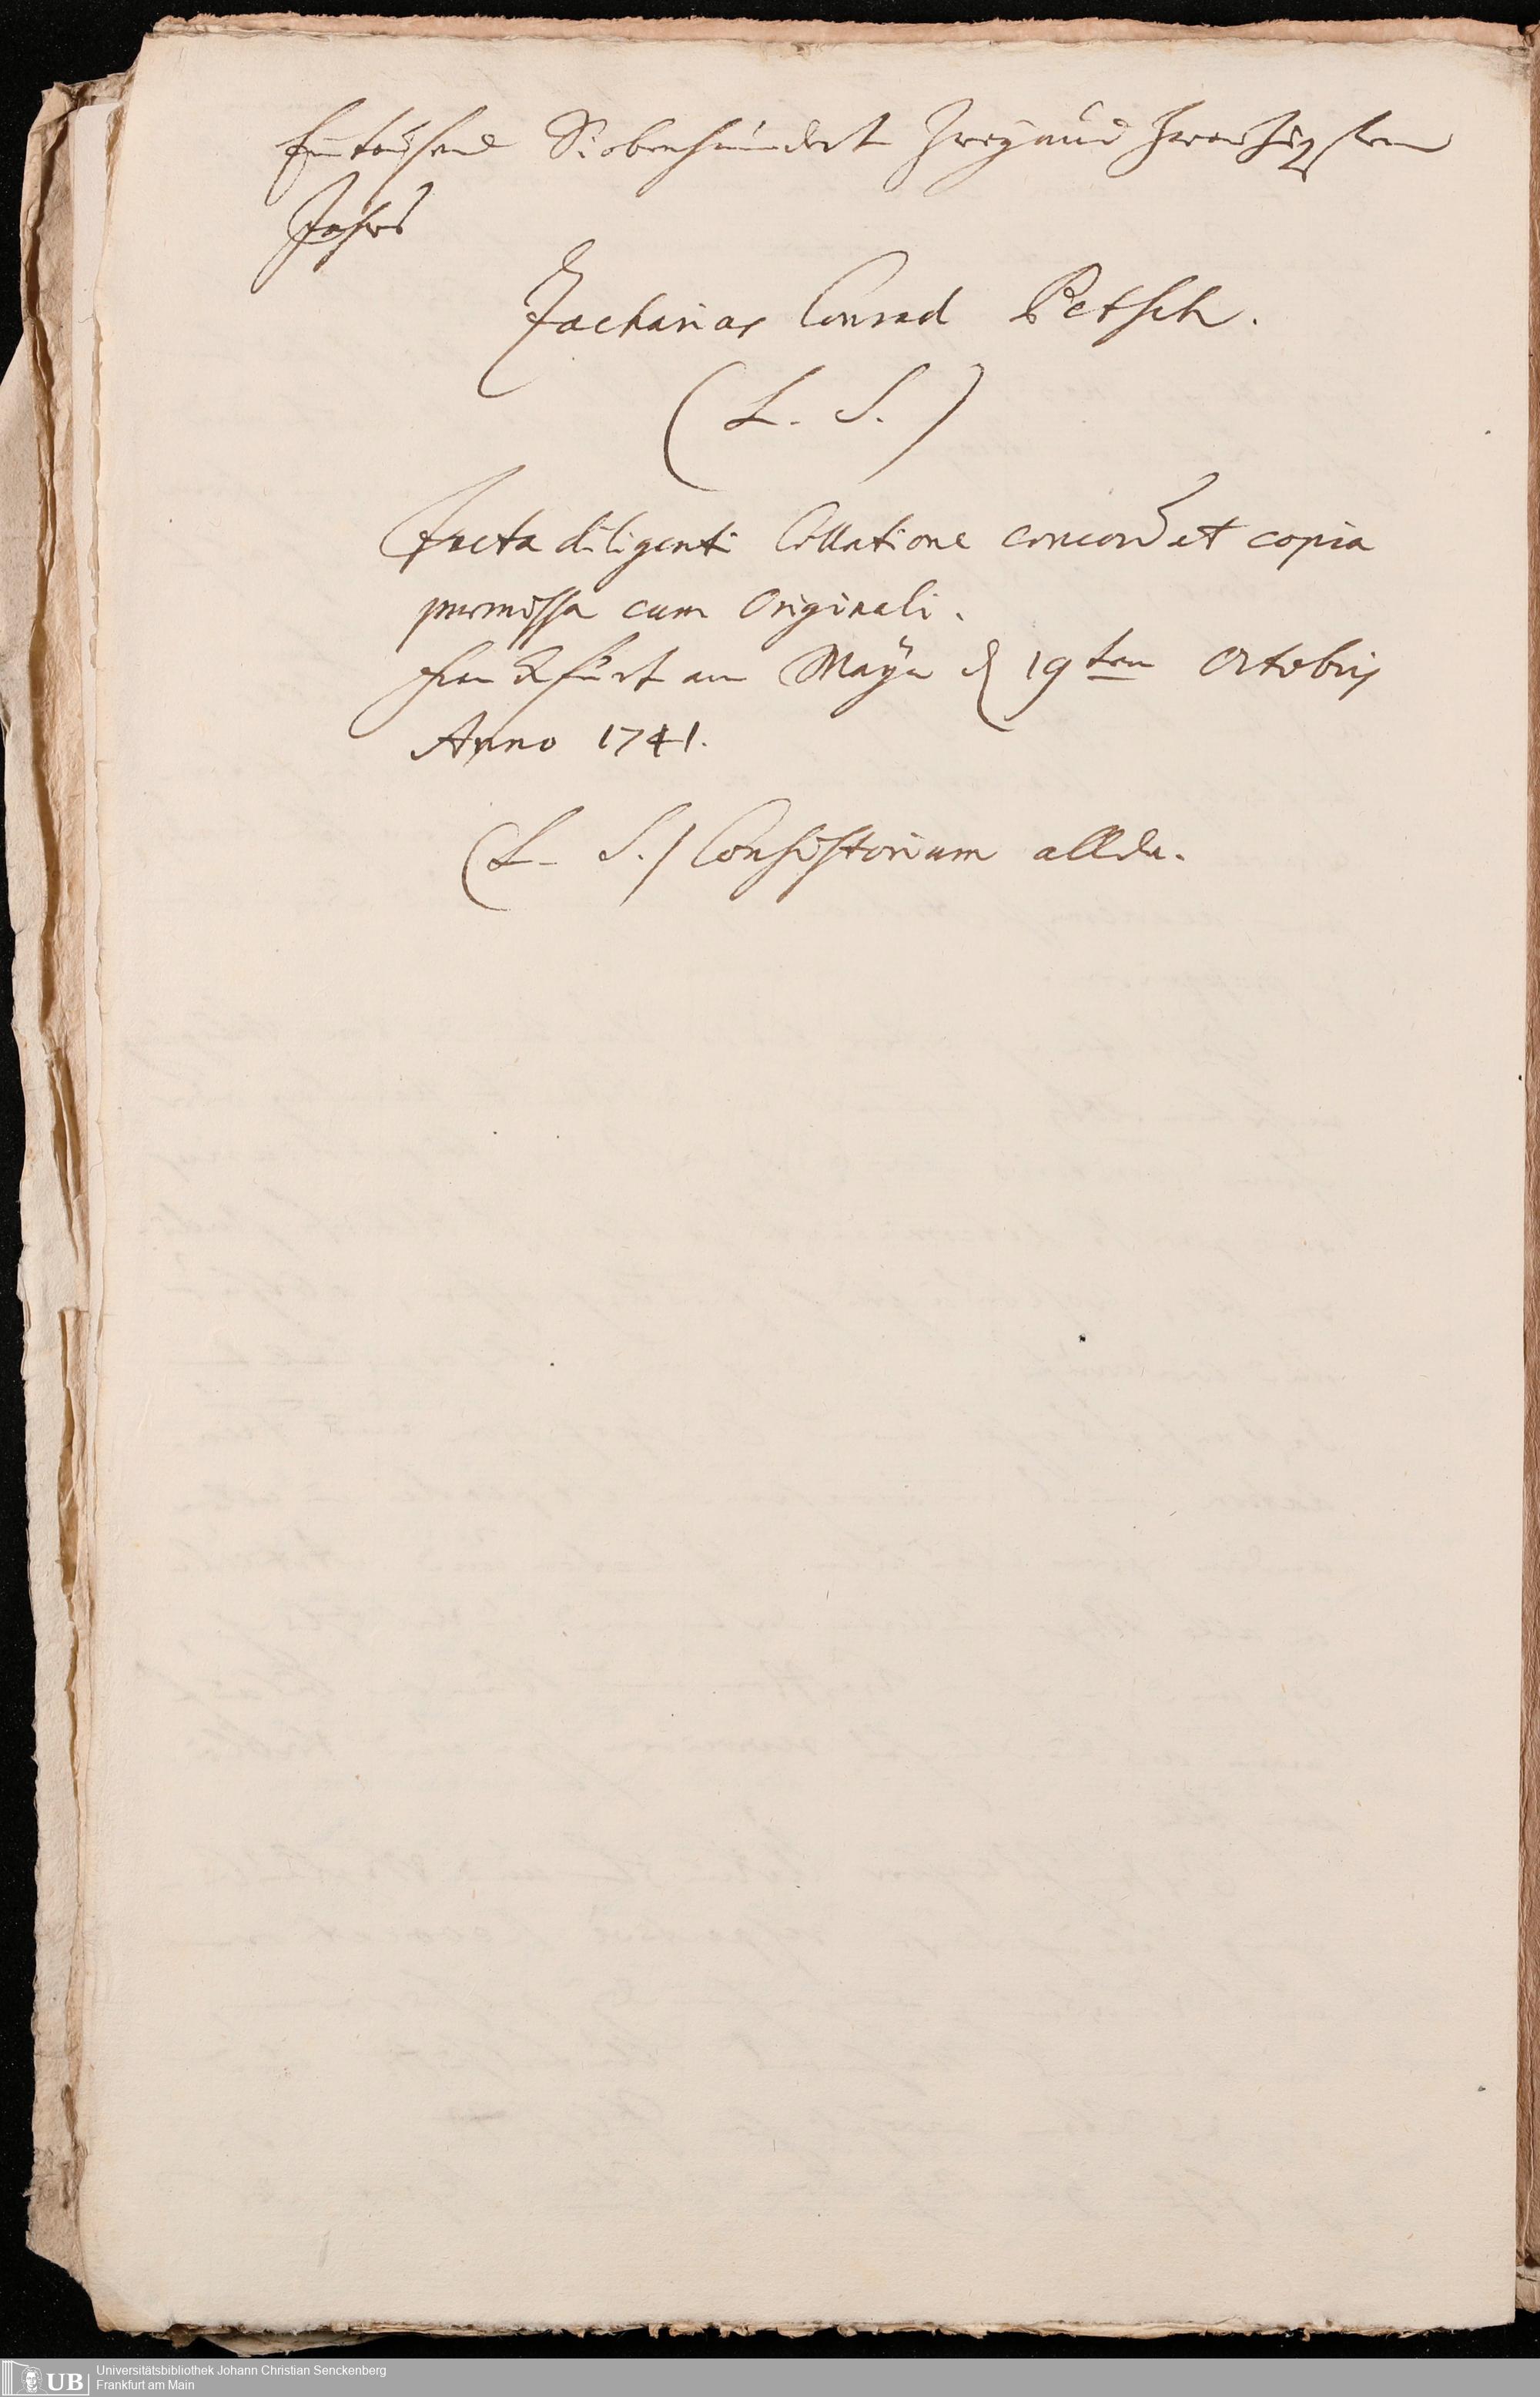 Eintausend Siebenhundert Zwey und Zwanzigsten
Jahrs
Zacharias Conrad Petsch.
(L. S.)
Facta diligenti Collatione concordat copia
premissa cum Originali.
Franckfurt am Mayn d 19ten Octobris
Anno 1741.
(L. S.) Consistorium allda.
UB
Universitätsbibliothek Johann Christian Senckenberg
Frankfurt am Main